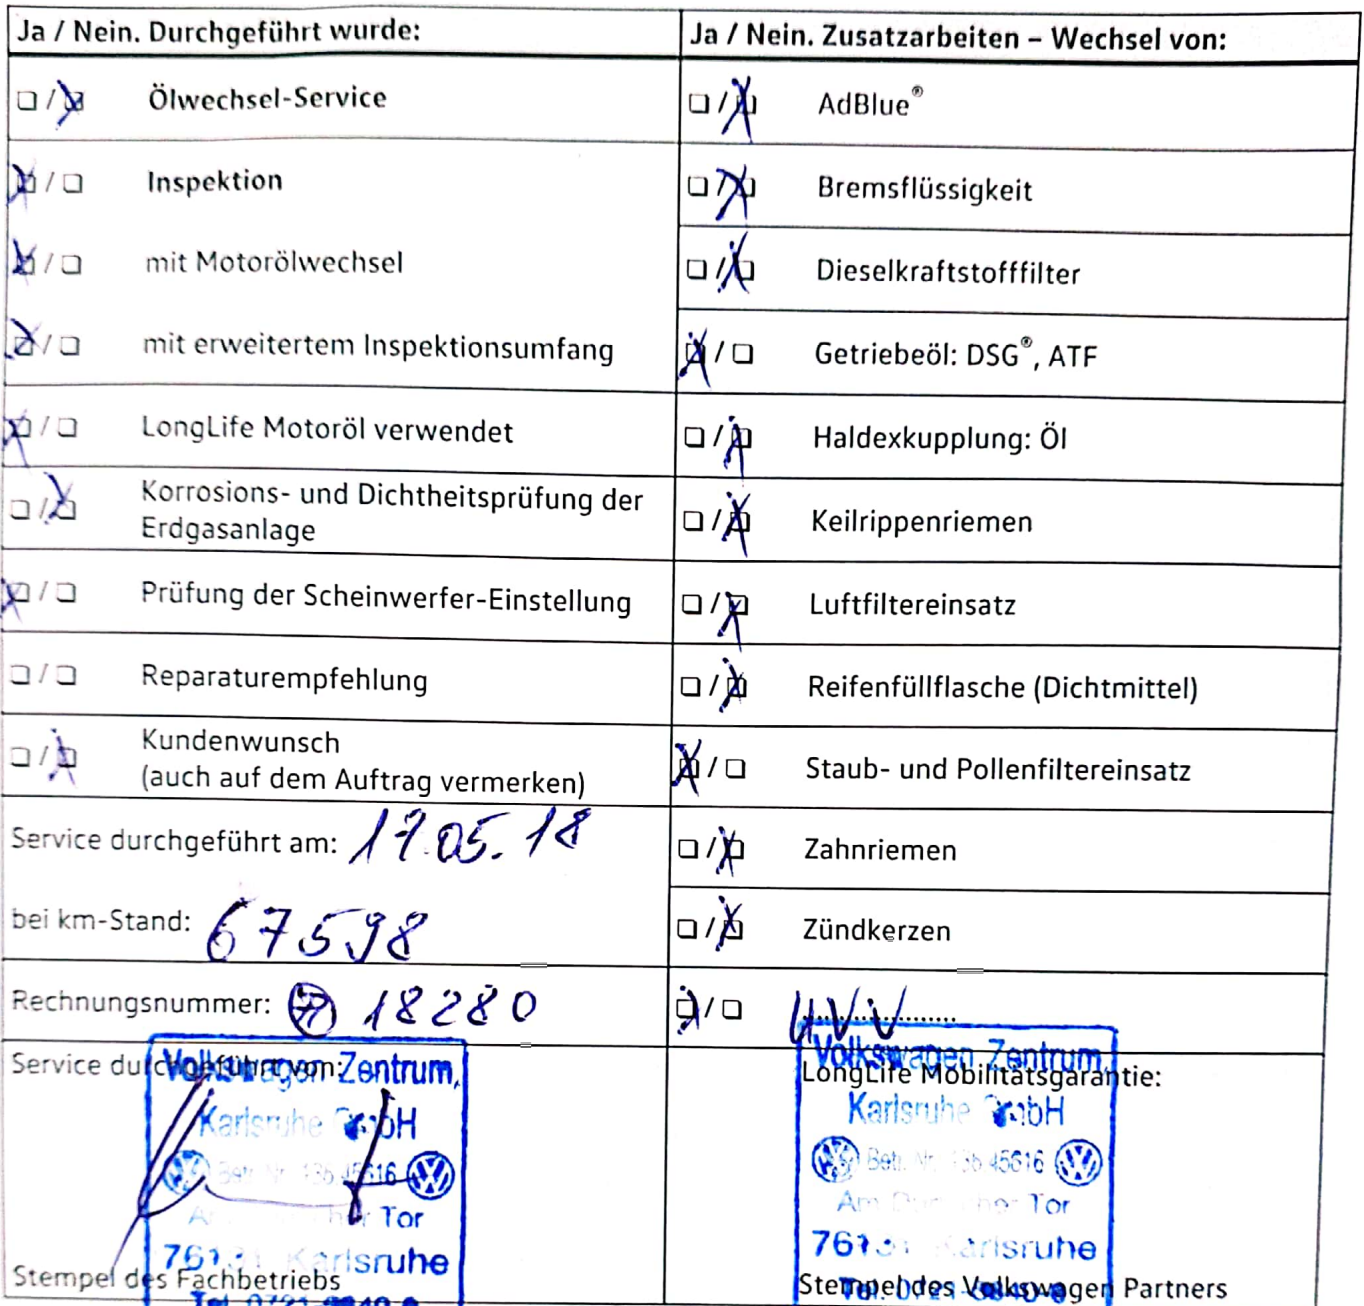 Ja / Nein. Durchgeführt wurde:
Ölwechsel-Service
Inspektion
mit Motorölwechsel
mit erweitertem Inspektionsumfang
LongLife Motoröl verwendet
Korrosions- und Dichtheitsprüfung der
Erdgasanlage
Prüfung der Scheinwerfer-Einstellung
Reparaturempfehlung
Kundenwunsch
(auch auf dem Auftrag vermerken)
Service durchgeführt am: 17.05.18
bei km-Stand: 67598
Rechnungsnummer: 18280
Service durchgeführt von:
Volkswagen Zentrum
Karlsruhe GmbH
Betr. Nr. 45616
Tor
Karlsruhe
Stempel des Fachbetriebs
Tel. 0721
Ja / Nein. Zusatzarbeiten – Wechsel von:
AdBlue®
Bremsflüssigkeit
Dieselkraftstofffilter
Getriebeöl: DSG®, ATF
Haldexkupplung: Öl
Keilrippenriemen
Luftfiltereinsatz
Reifenfüllflasche (Dichtmittel)
Staub- und Pollenfiltereinsatz
Zahnriemen
Zündkerzen
UVV
Volkswagen Zentrum
LongLife Mobilitätsgarantie:
Karlsruhe GmbH
Betr. Nr. 45616
Am Tor
Karlsruhe
Stempel des Volkswagen Partners